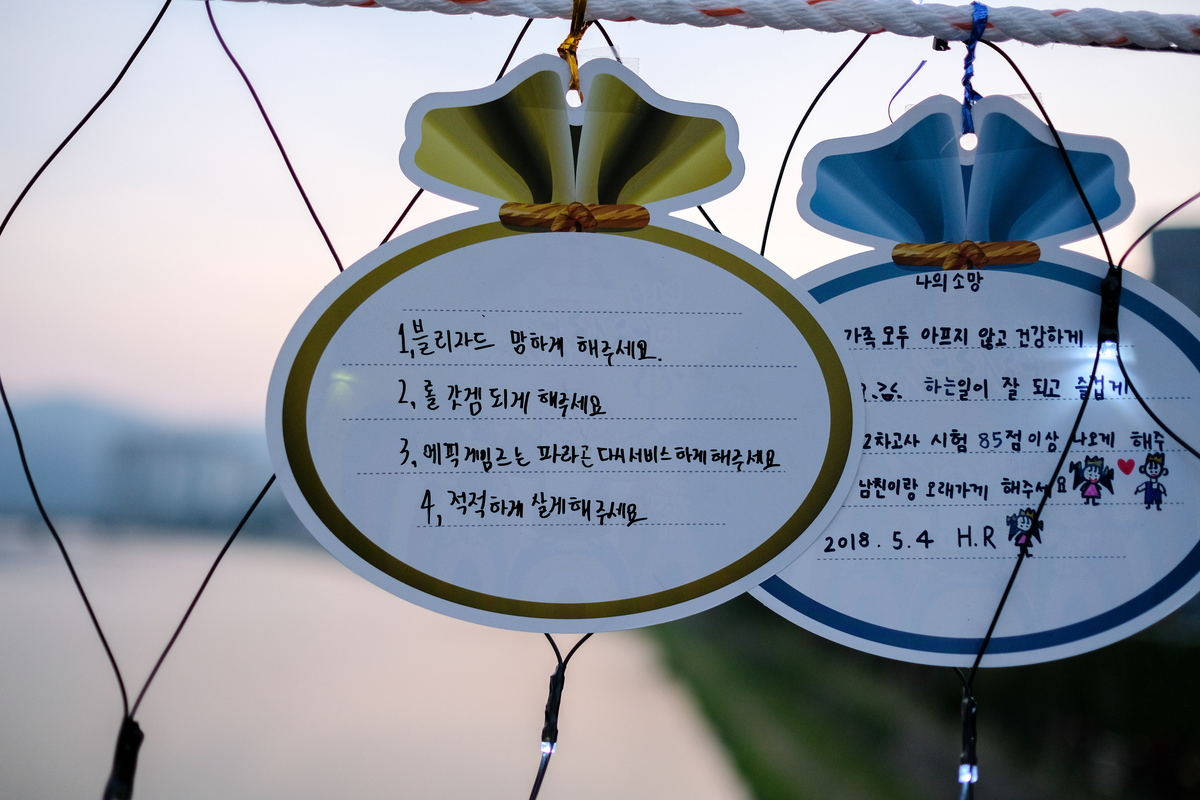 1, 블리자드 망하게 해주세요.
2, 롤 갓겜 되게 해주세요
3, 에픽게임즈는 파라곤 다시 서비스하게 해주세요
4, 적적하게 살게해주세요
나의 소망
가족 모두 아프지 않고 건강하게
하는일이 잘 되고 즐겁게
2차고사 시험 85점이상 나오게 해주
남친이랑 오래가게 해주세요
2018. 5. 4 H.R